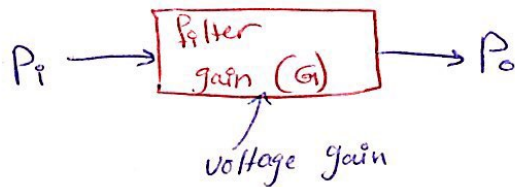 filter
Pi
gain (G)
Po
voltage gain